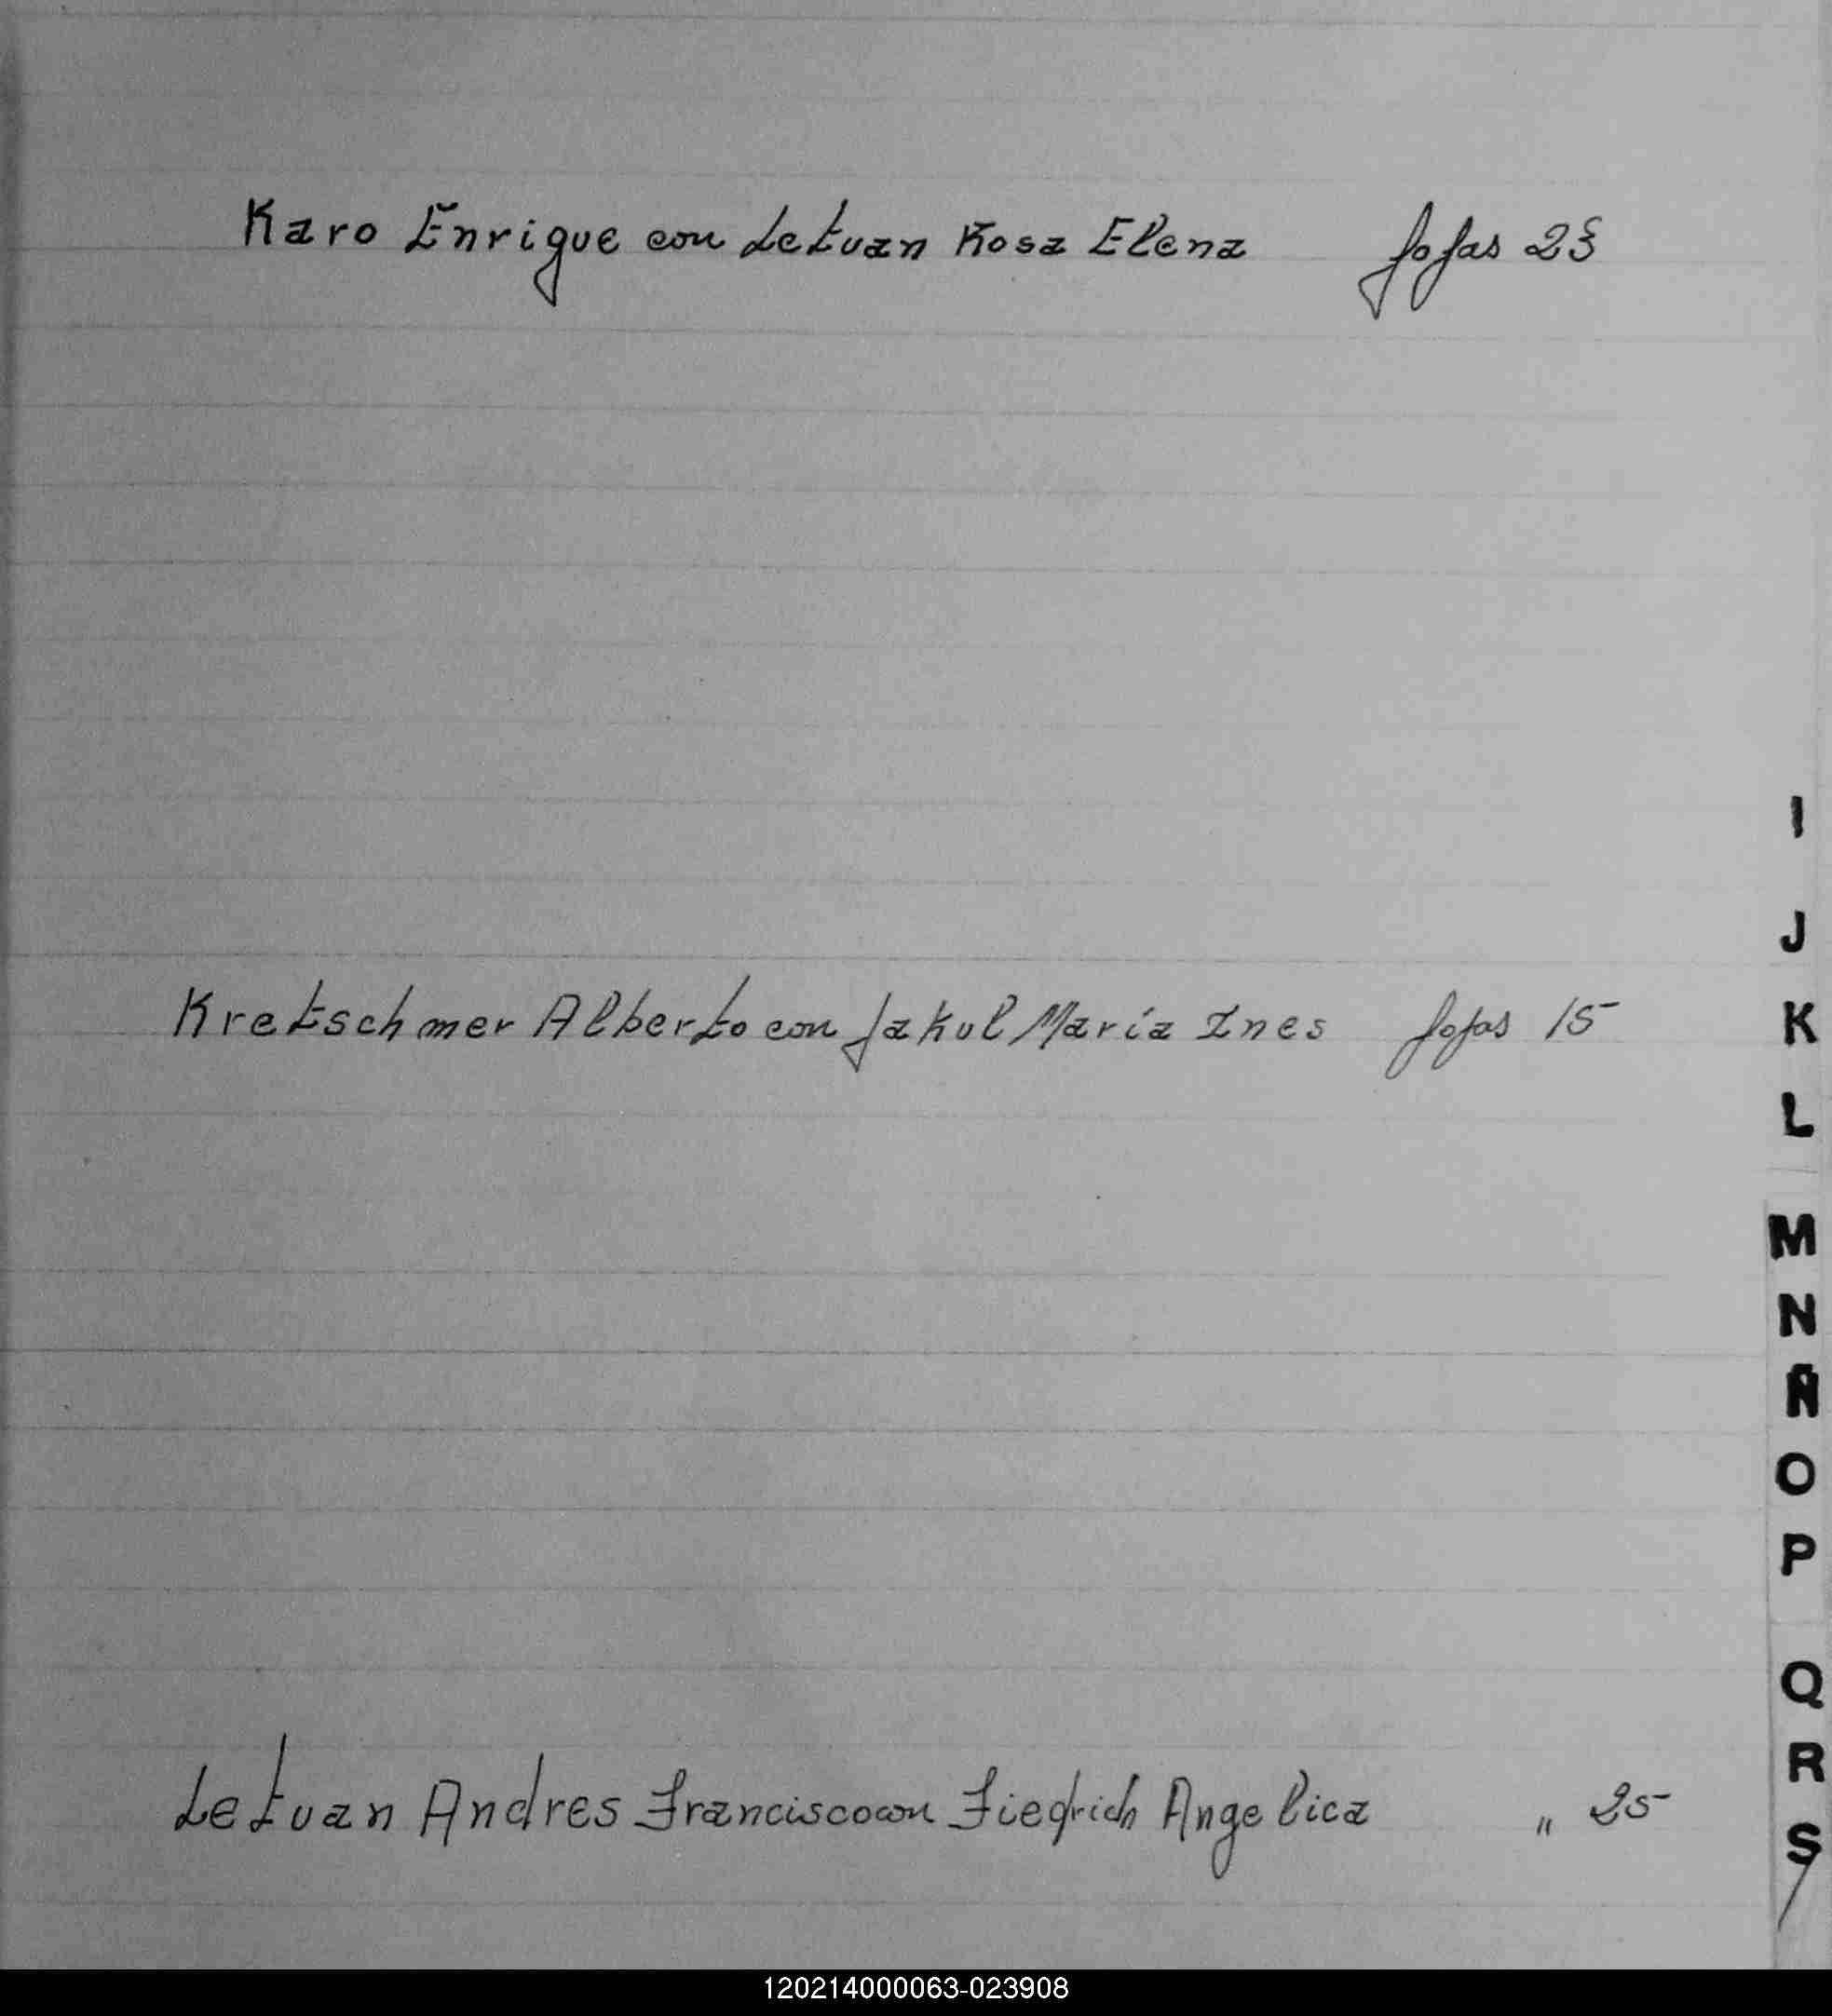 Karo Enrique con Letuan Rosa Elena fojas 23
I
J
Kretschmer Alberto con Jakul María Ines fojas 15
K
L
M
N
Ñ
O
P
Q
R
Letuan Andres Francisco con Angelica " 25
S
120214000063-023908